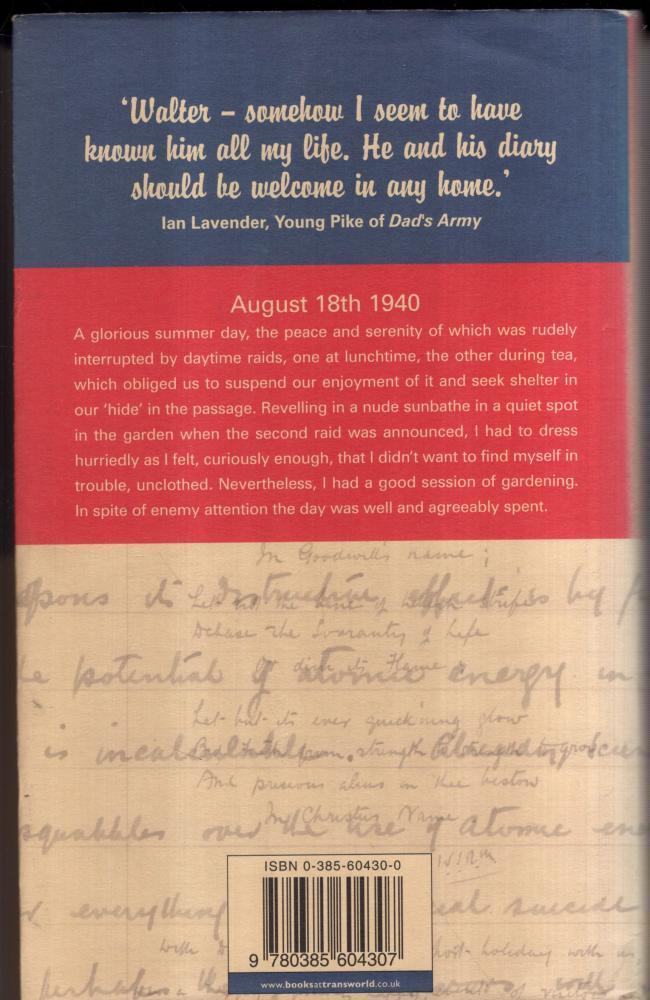 ‘Walter – somehow I seem to have
known him all my life. He and his diary
should be welcome in any home.’
Ian Lavender, Young Pike of Dad's Army
August 18th 1940
A glorious summer day, the peace and serenity of which was rudely
interrupted by daytime raids, one at lunchtime, the other during tea,
which obliged us to suspend our enjoyment of it and seek shelter in
our ‘hide’ in the passage. Revelling in a nude sunbathe in a quiet spot
in the garden when the second raid was announced, I had to dress
hurriedly as I felt, curiously enough, that I didn’t want to find myself in
trouble, unclothed. Nevertheless, I had a good session of gardening.
In spite of enemy attention the day was well and agreeably spent.
In Goodwill's name;
its destructive effects by
Let not the of strife
Debase the of Life
potential of atomic energy in
or dim its Flame
Let but its ever quick'ning glow
is
strength to strength
And precious on thee bestow
In Christus Name
squabbles over the use of atomic
everything suicide
with holiday with
perhaps
ISBN 0-385-60430-0
9 780385 604307
www.booksattransworld.co.uk